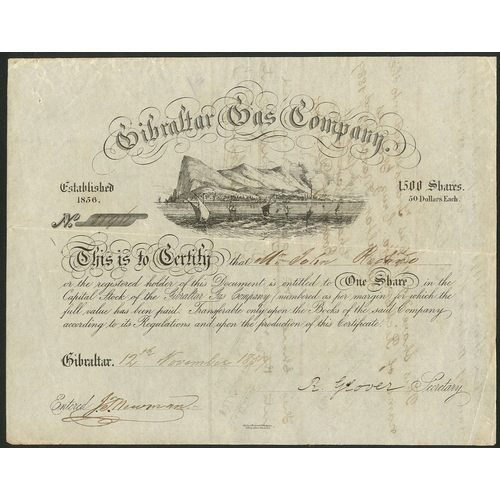 Gibraltar Gas Company.
Established
1856.
1500 Shares.
50 Dollars Each.
No.
This is to Certify that Mr. John
or the registered holder of this Document is entitled to One Share in the
Capital Stock of the Gibraltar Gas Company numbered as per margin for which the
full value has been paid. Transferable only upon the Books of the said Company
according to its Regulations and upon the production of this Certificate.
Gibraltar. 12th November
Glover Secretary
Entered Newman